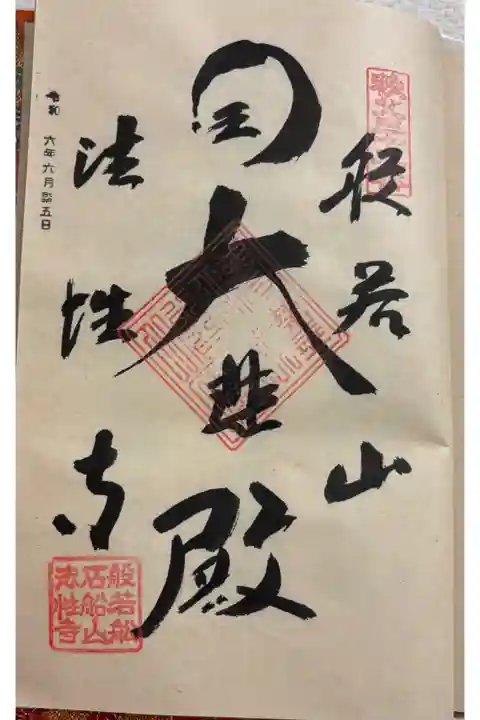 般若山
大悲殿
法性寺
令和 六年六月 五日
般若船
石船山
法性寺